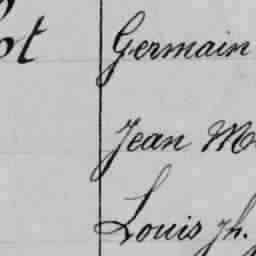 ot Germain
Jean M
Louis ph.